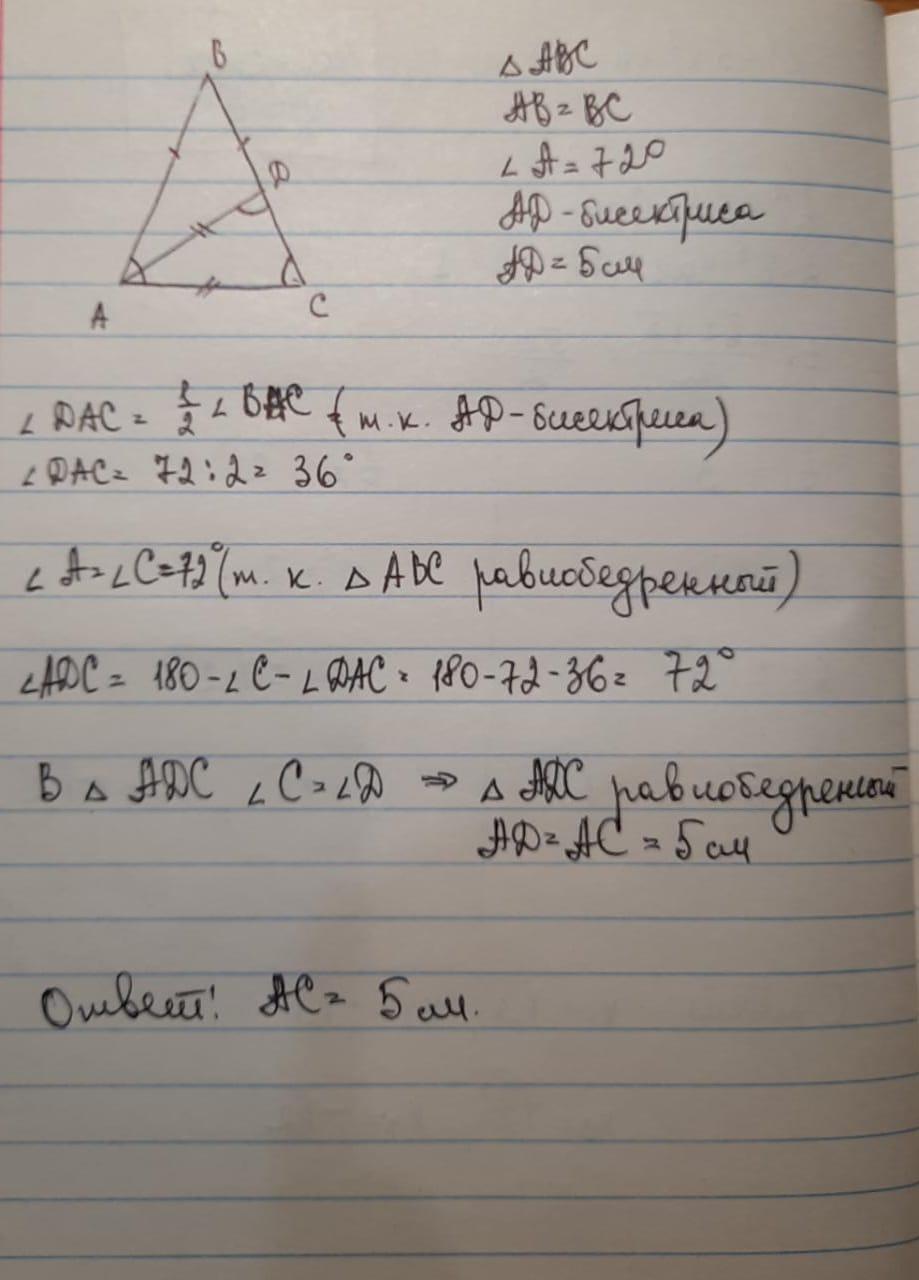 B
D
A
C
△ ABC
AB = BC
∠ A = 72°
AD - бисектриса
AD = 5 см
∠ DAC = 1/2 ∠ BAC (т.к. AD - бисектриса)
∠ DAC = 72 : 2 = 36°
∠ A = ∠ C = 72° (т. к. △ ABC равнобедренный)
∠ADC = 180 - ∠ C - ∠ DAC = 180 - 72 - 36 = 72°
В △ ADC ∠ C = ∠ D ⇒ △ ADC равнобедренный
AD = AC = 5 см
Ответ: AC = 5 см.